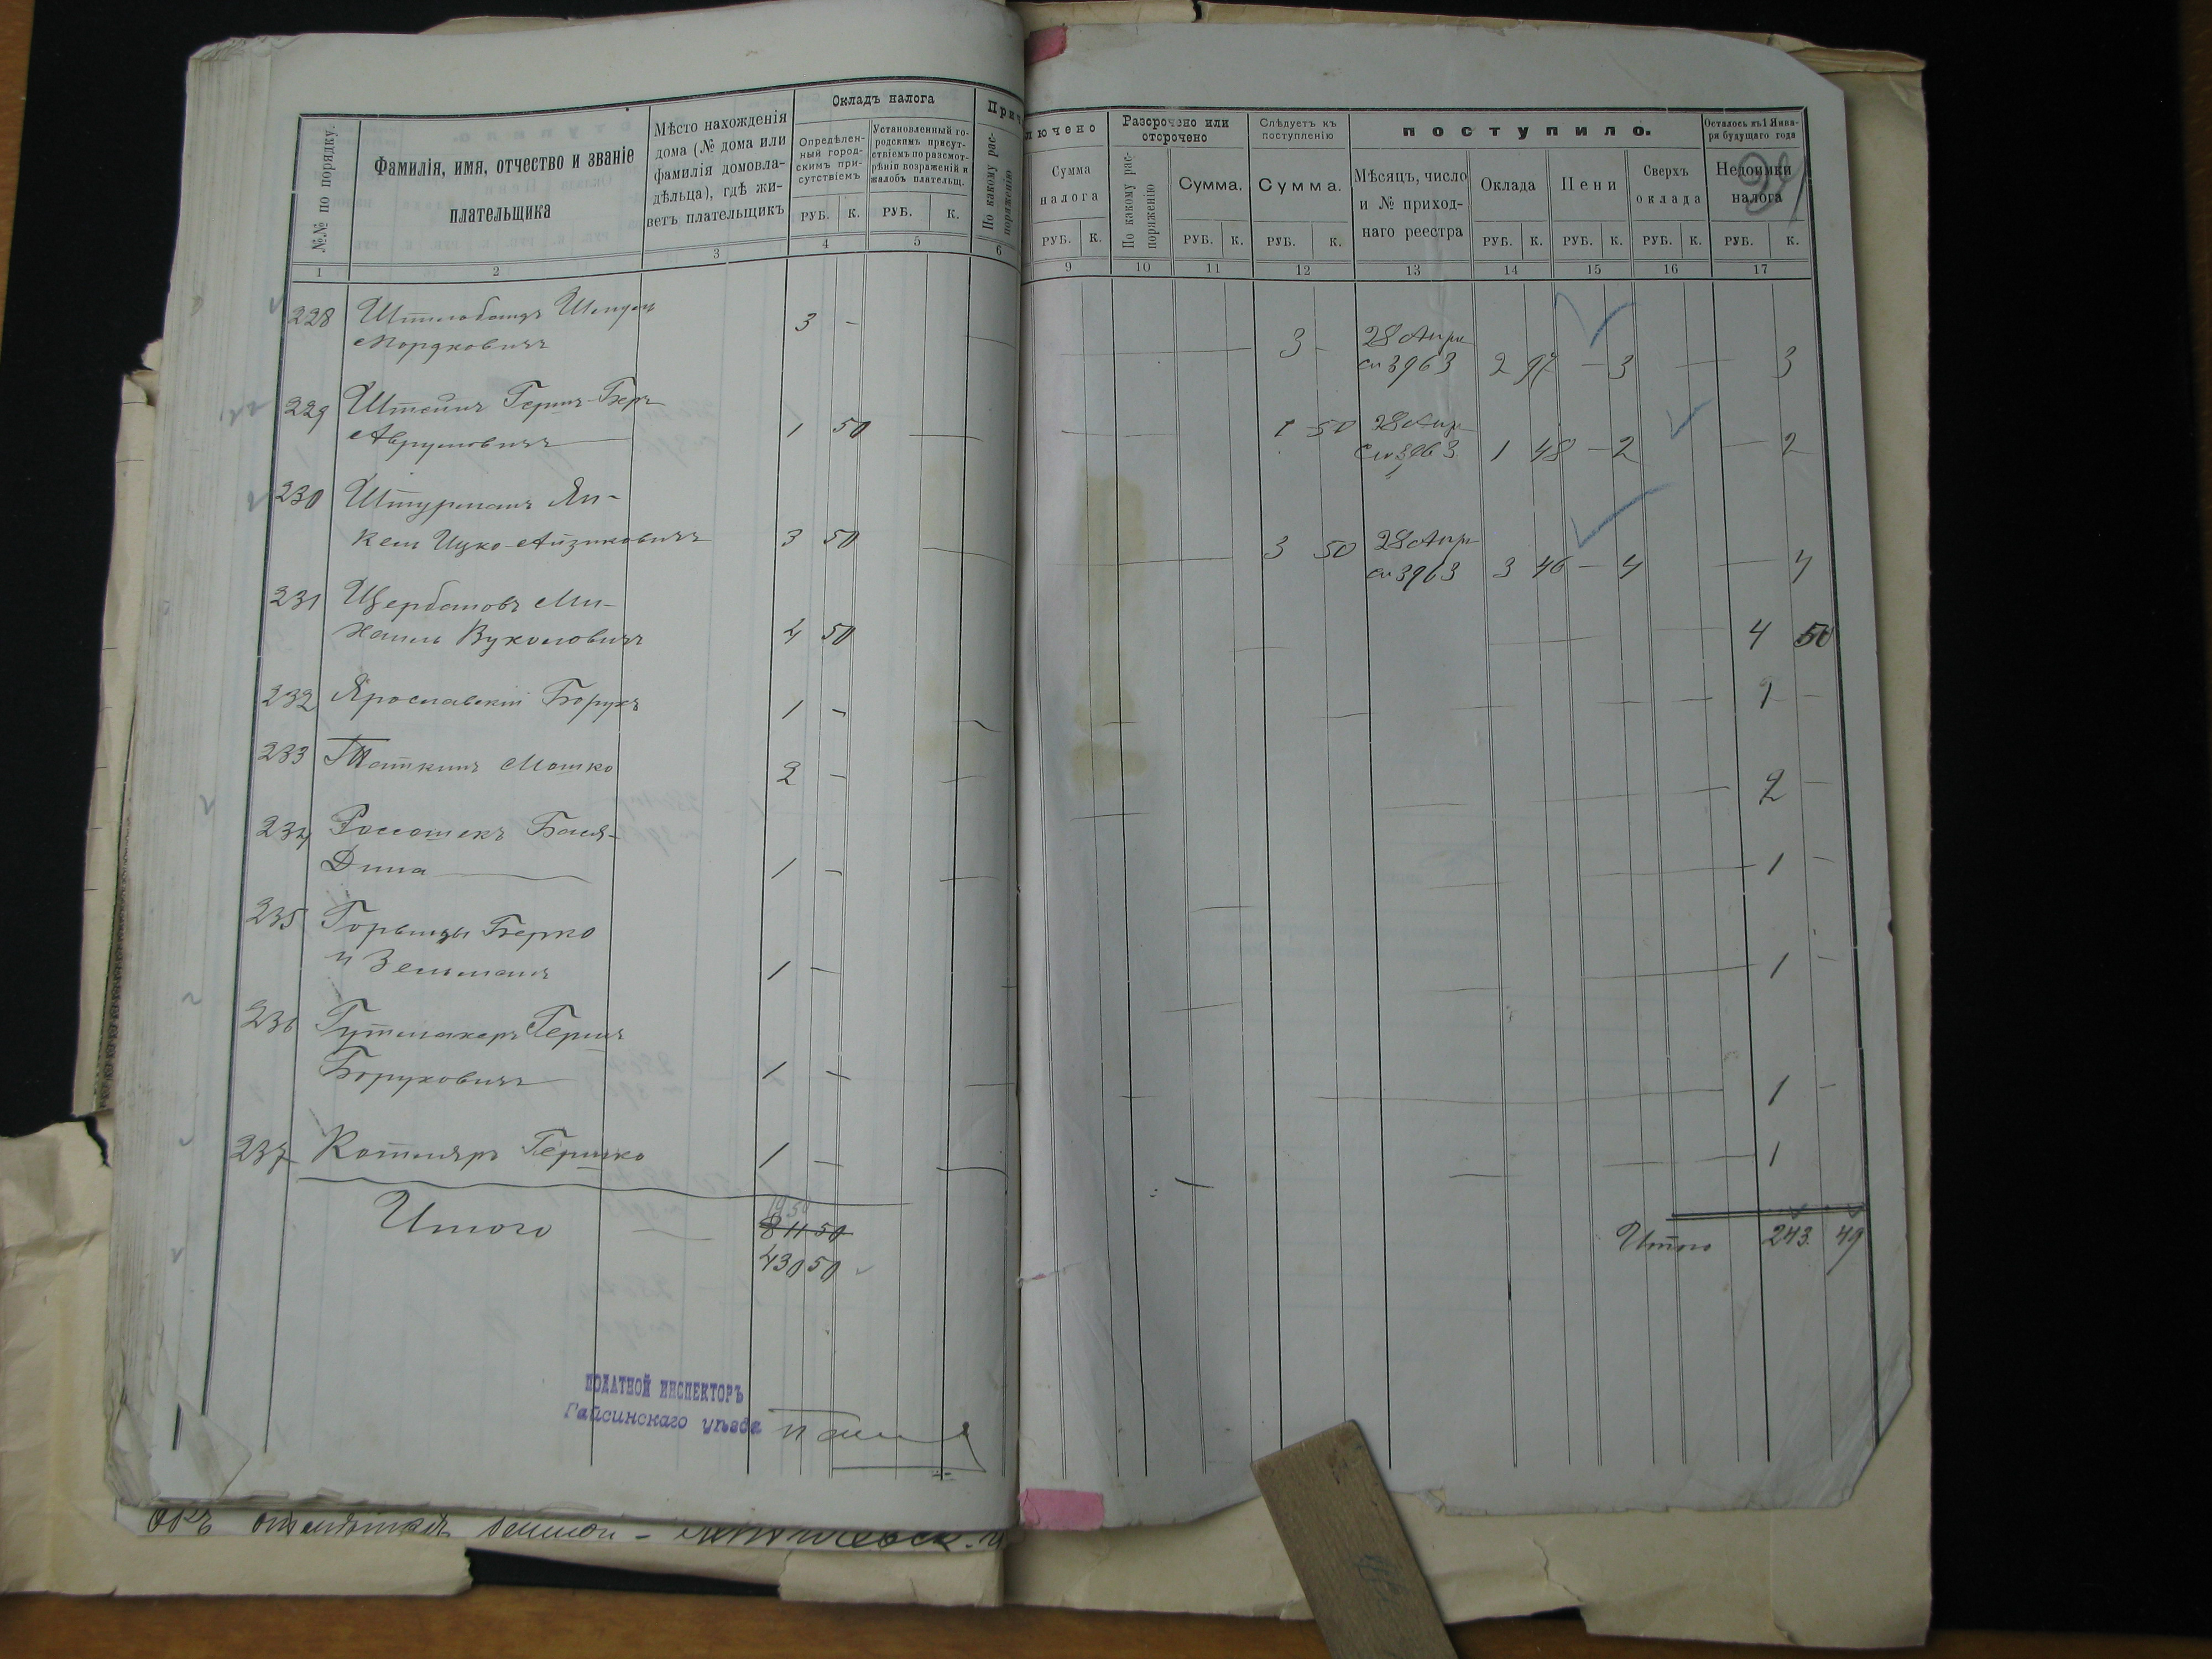 Окладъ налога
№№ по порядку.
Фамилія, имя, отчество и званіе
плательщика
Мѣсто нахожденія
дома (№ дома или
фамилія домовла-
дѣльца), гдѣ жи-
ветъ плательщикъ
Опредѣлен-
ный город-
скимъ при-
сутствіемъ
Установленный го-
родскимъ присут-
ствіемъ по разсмот-
рѣніи возраженій и
жалобъ плательщ.
РУБ. К. РУБ. К.
По какому рас-
поряженію
1 2 3 4 5 6
лючено
Сумма
налога
РУБ. К.
Разсрочено или
отсрочено
По какому рас-
поряженію
Сумма.
РУБ. К.
Слѣдуетъ къ
поступленію
Сумма.
РУБ. К.
поступило.
Мѣсяцъ, число
и № приход-
наго реестра
Оклада
РУБ. К.
Пени
РУБ. К.
Сверхъ
оклада
РУБ. К.
Осталось къ 1 Янва-
ри будущаго года
Недоимки
налога
РУБ. К.
9 10 11 12 13 14 15 16 17
228
Мордковичъ
3 -
3 - 28 Апр
3963 2 97 - 3 3
229 Штейнъ Герш-Беръ
Аврумовичъ 1 50
1 50 28 Апр
3963 1 48 - 2 2
230 Штурманъ Ян-
кель Ицко-Айзиковичъ 3 50
3 50 28 Апр
3963 3 46 - 4 4
231 Щербановъ Ми-
хаилъ Вуколовичъ 4 50
4 50
232 Ярославскій Борухъ 1 -
1 -
233 Мошко 2 -
2 -
234 Бася-
Дина 1 -
1 -
235 Берко
и Зельманъ 1 -
1 -
236 Гутмахеръ Гершъ
Боруховичъ 1 -
1 -
237 Котляръ Гершко 1 -
1
Итого
430 50
Итого 243. 49
ПОДАТНОЙ ИНСПЕКТОРЪ
Гайсинскаго уѣзда